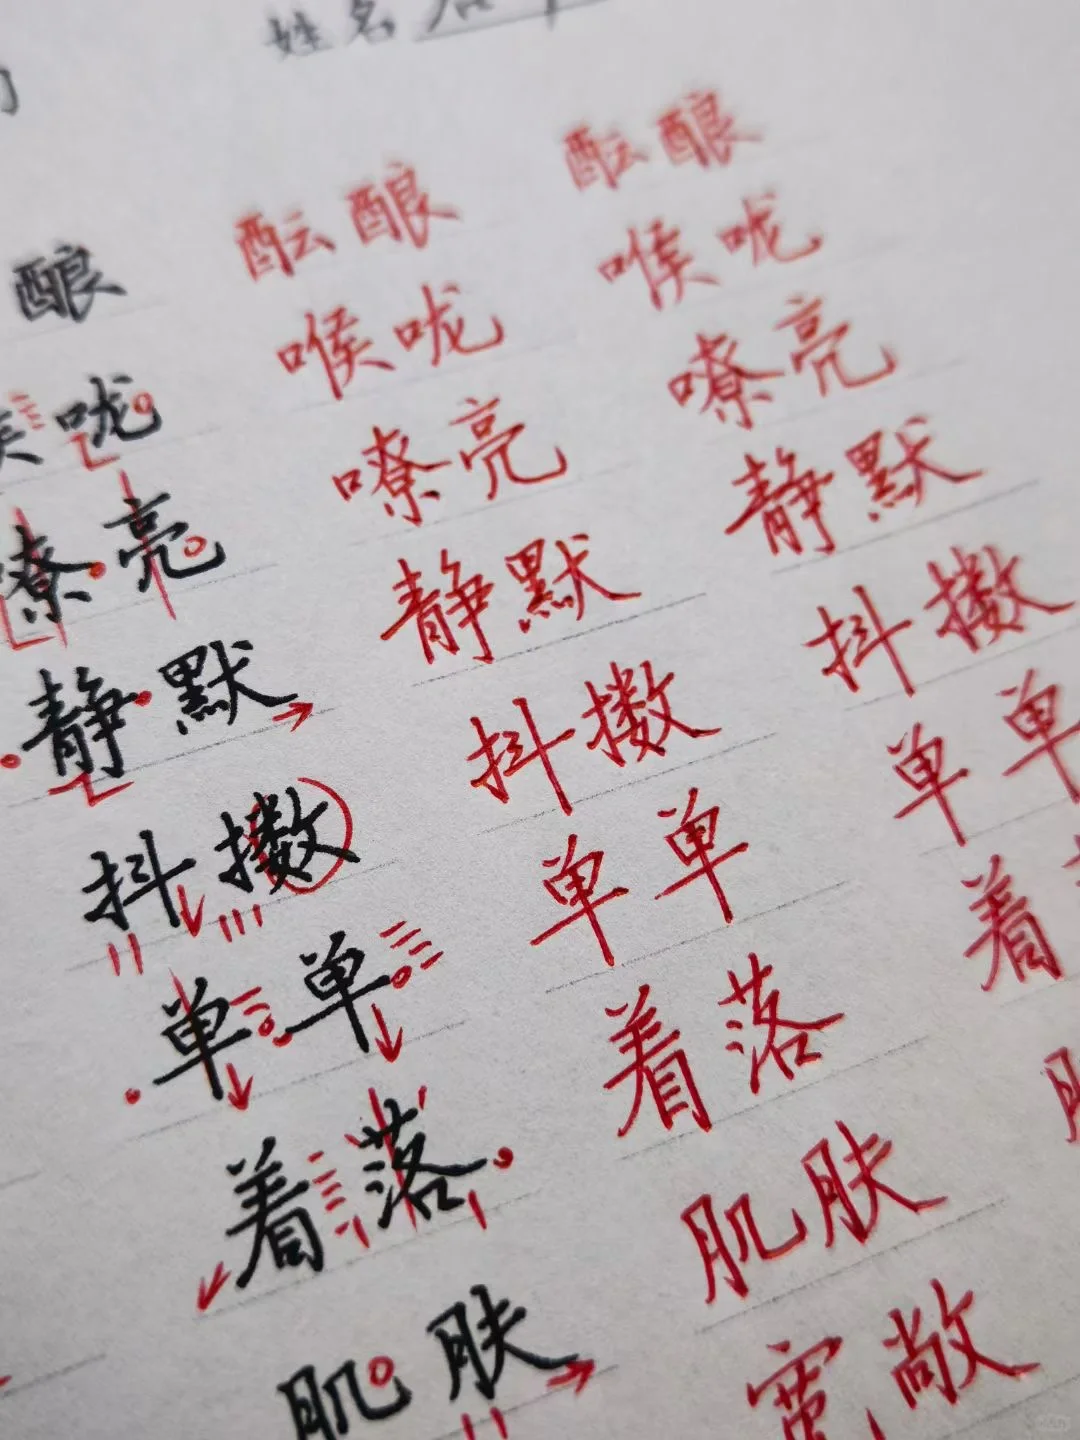 姓名
酿 酝酿 酝酿
咙 喉咙 喉咙
嘹亮 嘹亮 嘹亮
静默 静默 静默
抖擞 抖擞 抖擞
单单 单单 单单
着落 着落 着
肌肤 肌肤
宽敞